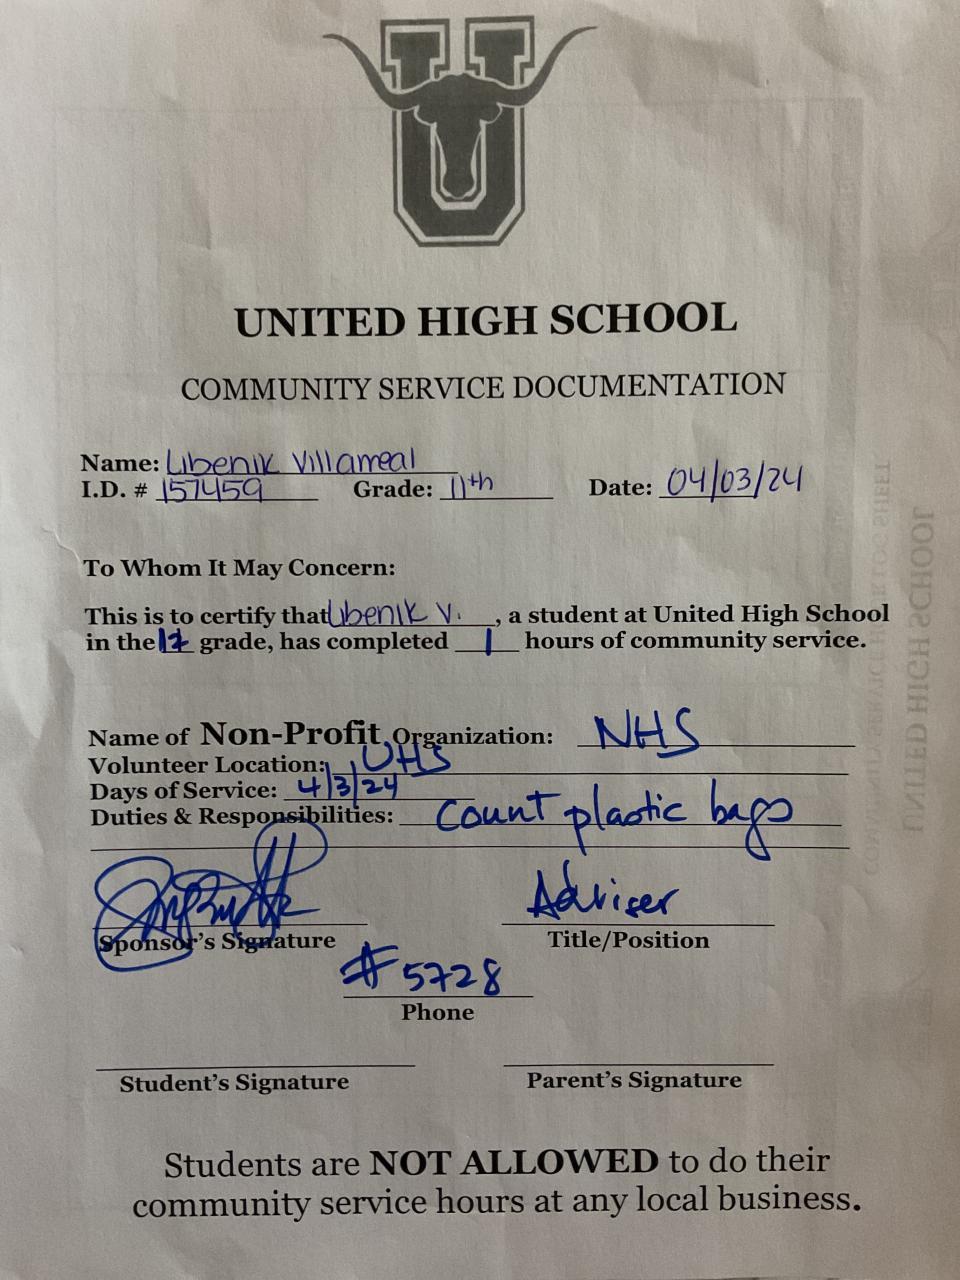 U
UNITED HIGH SCHOOL
COMMUNITY SERVICE DOCUMENTATION
Name: Libenik Villarreal
I.D. # 157459 Grade: 11th Date: 04/03/24
To Whom It May Concern:
This is to certify that Libenik V. , a student at United High School
in the grade, has completed 1 hours of community service.
Name of Non-Profit Organization: NHS
Volunteer Location: UHS
Days of Service: 4/3/24
Duties & Responsibilities: Count plastic bags
Adviser
Sponsor's Signature Title/Position
#5728
Phone
Student's Signature Parent's Signature
Students are NOT ALLOWED to do their
community service hours at any local business.
UNITED HIGH SCHOOL